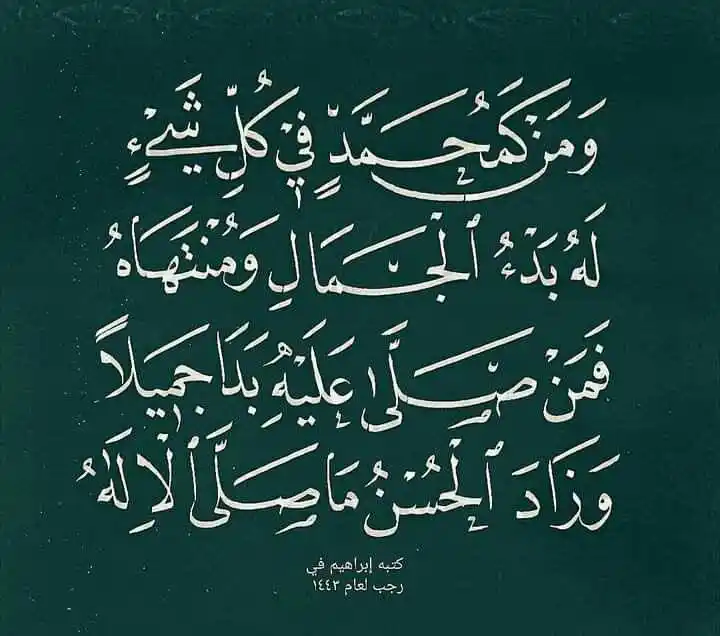 وَمَنْ كَمُحَمَّدٍ فِي كُلِّ شَيْءٍ
لَهُ بَدْءُ ٱلْجَمَالِ وَمُنْتَهَاهُ
فَمَنْ صَلَّى عَلَيْهِ بَدَا جَمِيلاً
وَزَادَ ٱلْحُسْنُ مَا صَلَّى ٱلْإِلَهُ
كتبه إبراهيم في
رجب لعام ١٤٤٣